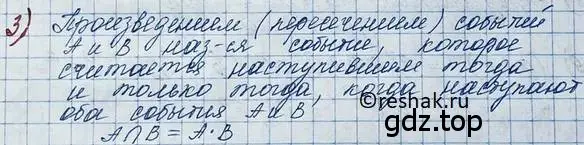 3) Произведением (пересечением) событий
А и В наз-ся событие, которое
считается наступившем тогда
и только тогда, когда наступают
оба события А и В
A∩B = A·B
©reshak.ru